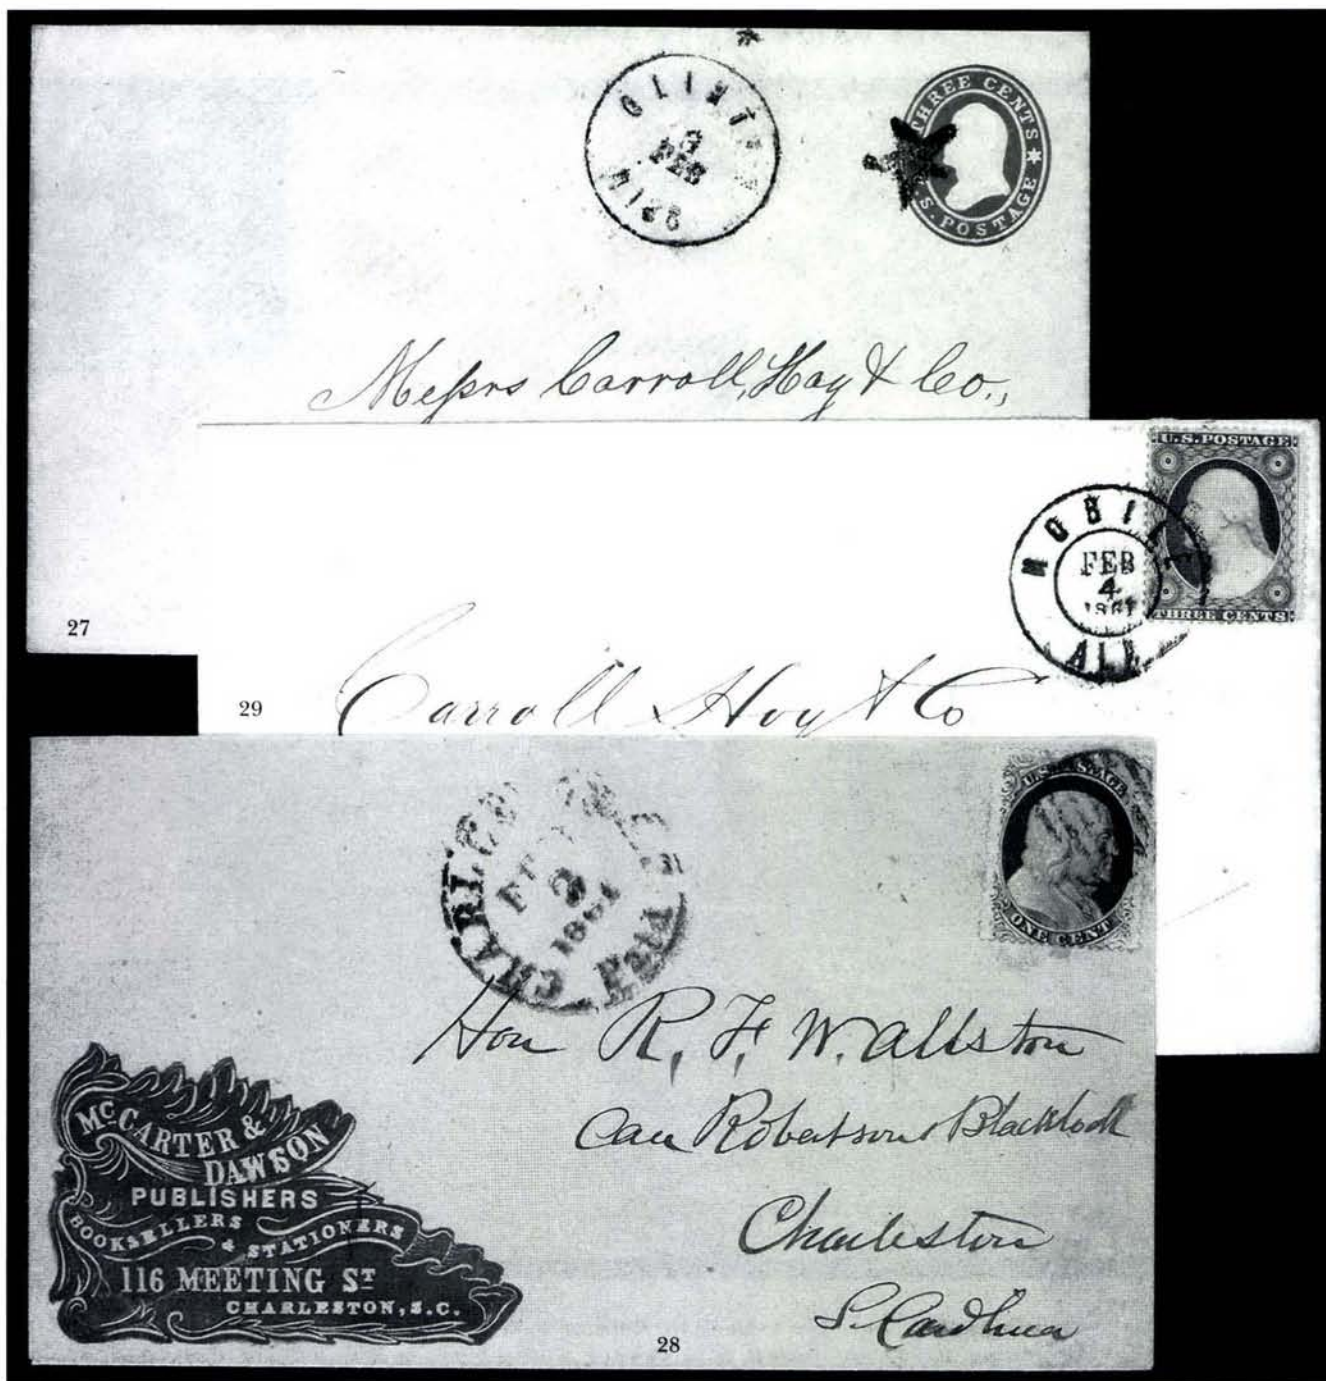 THREE CENTS
U.S. POSTAGE
3
FEB
Messrs Carroll, Hoy & Co.,
27
U.S. POSTAGE
THREE CENTS
MOBILE
FEB
4
1861
ALA
Carroll Hoy & Co
29
U.S. POSTAGE
ONE CENT
CHARLES
3
1861
Paid
Hon R. F. W. Allston
Care Robertson & Blacklock
Charleston
S. Carolina
McCARTER &
DAWSON
PUBLISHERS
BOOKSELLERS
& STATIONERS
116 MEETING ST
CHARLESTON, S.C.
28